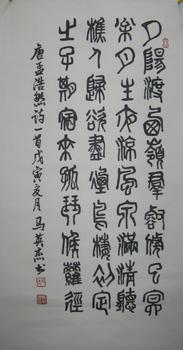 夕陽渡西嶺群壑倏已冥
松月生夜涼風泉滿清聽
樵人歸欲盡煙鳥棲初定
之子期宿來孤琴候蘿徑
唐孟浩然詩一首戊寅亥月馬英杰书